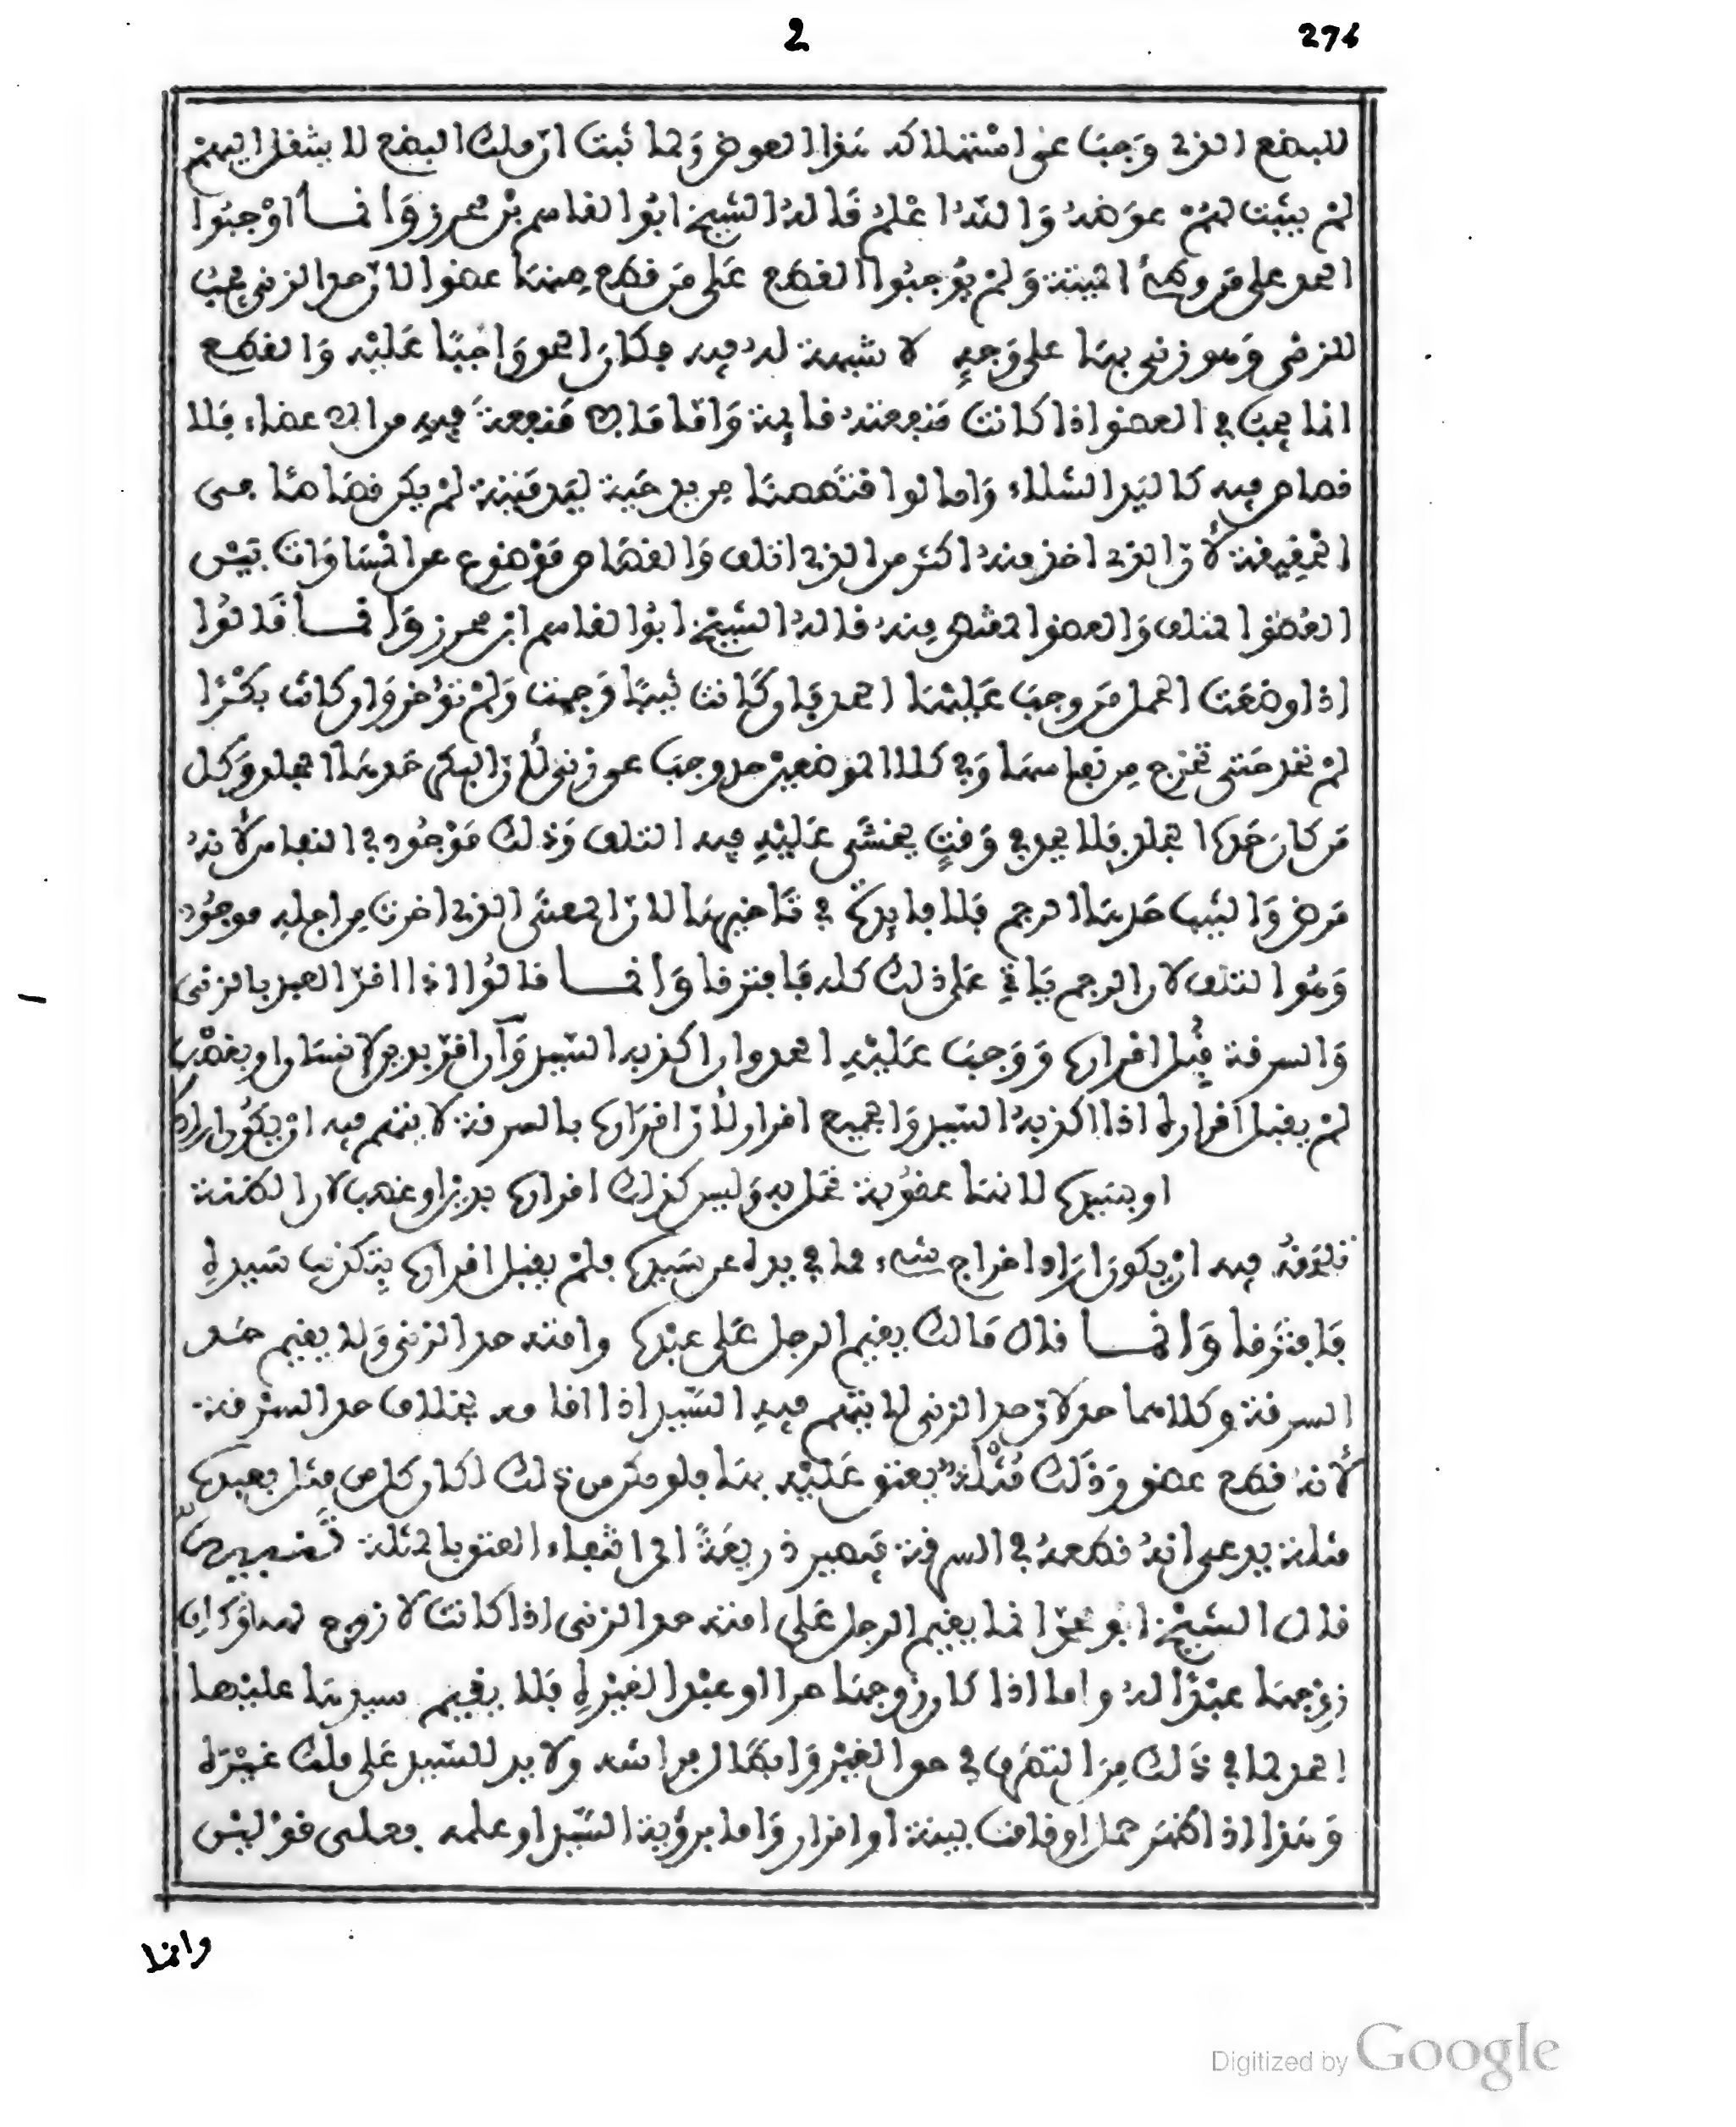 2 276
للبضع الذي وجب عن استهلاكه هذا العوض ولما ثبت ان ملك البضع لا ينتقل اليهم
لم يثبت لهم عوضه والله اعلم قاله الشيخ ابو القاسم بن محرز وانما اوجبوا
الحد على من وطئ الميتة ولم يوجبوا القطع على من قطع منها عضوا لان حد الزنى يجب
للزنى وهو زنى بها على وجه لا شبهة له فيه فكان الحد واجبا عليه والقطع
انما يجب في العضو اذا كانت منفعته قائمة واما ما لا منفعة فيه من الاعضاء فلا
قصاص فيه كاليد الشلاء واما لو اقتصصنا من يد حية ليد ميتة لم يكن قصاصا في
الحقيقة لأن الذي اخذ منه اكثر من الذي اتلف والقصاص موضوع على المساوات بين
العضو المتلف والعضو المقتص منه قاله الشيخ ابو القاسم ابن محرز وانما قالوا
اذا وضعت الحمل من وجب عليها الحد فان كانت ثيبا رجمت ولم تؤخر وان كانت بكرا
لم تحد حتى تخرج من نفاسها وفي كلا الموضعين حد وجب عن زنى لأن البكر حدها الجلد وكل
من كان حده الجلد فلا يحد في وقت يخشى عليه فيه التلف وذلك موجود في النفاس لأنه
مرض والثيب حدها الرجم فلا فايدة في تاخيرها لان المعنى الذي اخرت من اجله موجود
وهو التلف لان الرجم ياتي على ذلك كله فافترقا وانما قالوا اذا اقر العبد بالزنى
والسرقة قبل اقراره ووجب عليه الحد وان اكذبه السيد وان اقر بدين لانسان او بغصب
لم يقبل اقراره اذا اكذبه السيد والجميع اقرار لأن اقراره بالسرقة لا يتهم فيه ان يكون اراد
او بسيده لانها عقوبة تحل به وليس كذلك اقراره بدين او غصب لان الظنة
تلحقه فيه ان يكون اراد اخراج شيء مما في يده عن سيده فلم يقبل اقراره بتكذيب سيده
فافترقا وانما قال مالك يقيم الرجل على عبده وامته حد الزنى ولا يقيم حد
السرقة وكلاهما حد لان حد الزنى لا يتهم فيه السيد اذا اقامه بخلاف حد السرقة
لأنه قطع عضو وذلك مثلة يعتق عليه بها فلو مكن من ذلك لكان كل من مثل بعبده
مثلة يدعي انه قطعه في السرقة فتصير ذريعة الى انتفاء العتق بالمثلة تنبيه
قال الشيخ ابو انما يقيم الرجل على امته حد الزنى اذا كانت لا زوج لها او كان
زوجها عبدا له واما اذا كان زوجها حرا او عبدا لغيره فلا يقيم سيدها عليها
الحد لما في ذلك من التصرف في حق الغير وابطال فراشه ولا يد للسيد على ملك غيره
وهذا اذا ظهر حمل او قامت بينة او اقرار واما برؤية السيد او علمه فعلى قولين
وانما
Digitized by Google